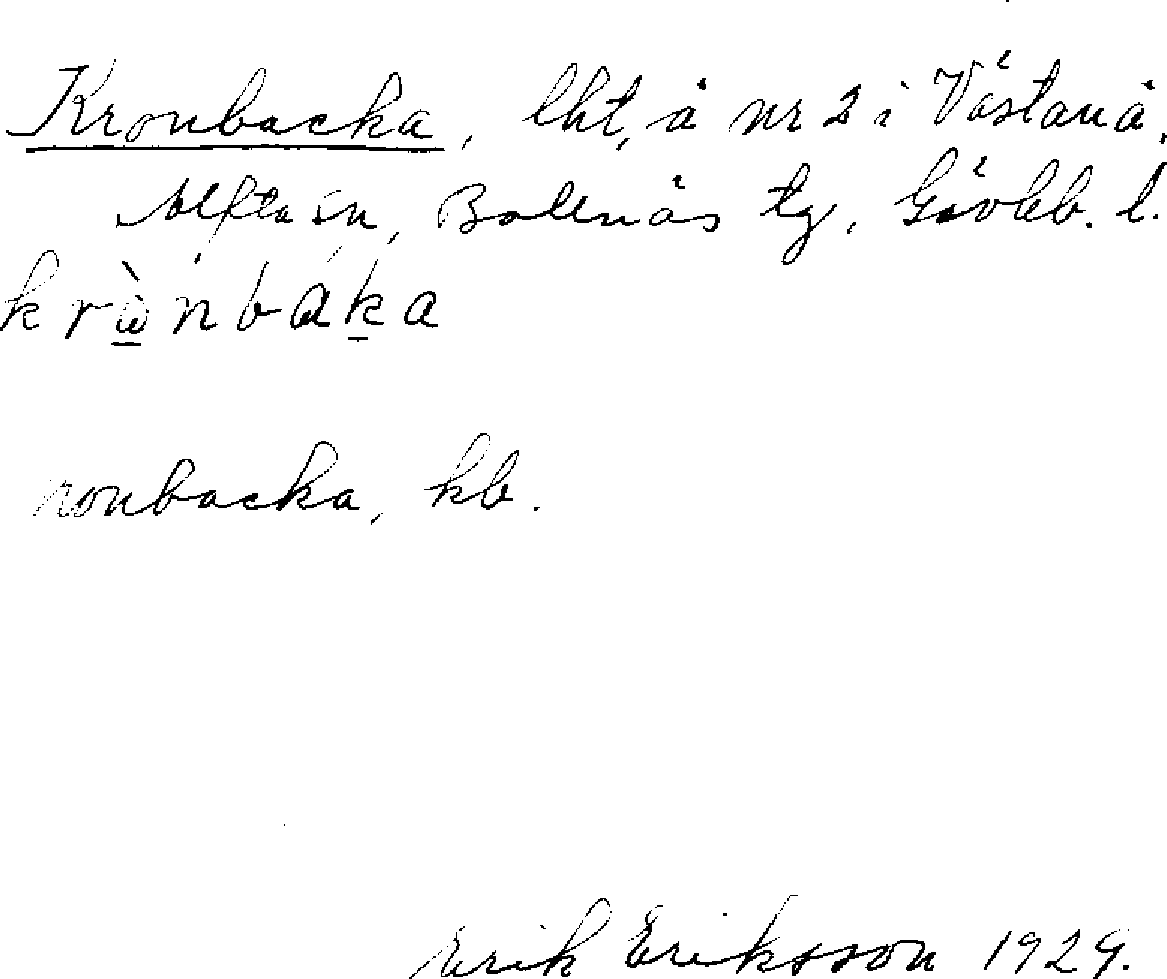 Kronbacka, lht, å nr 2 i Västanå,
Alfta sn, Bollnäs tg, Gävleb. l.
krὼnbaka
ronbacka, kb.
Erik Eriksson 1929.